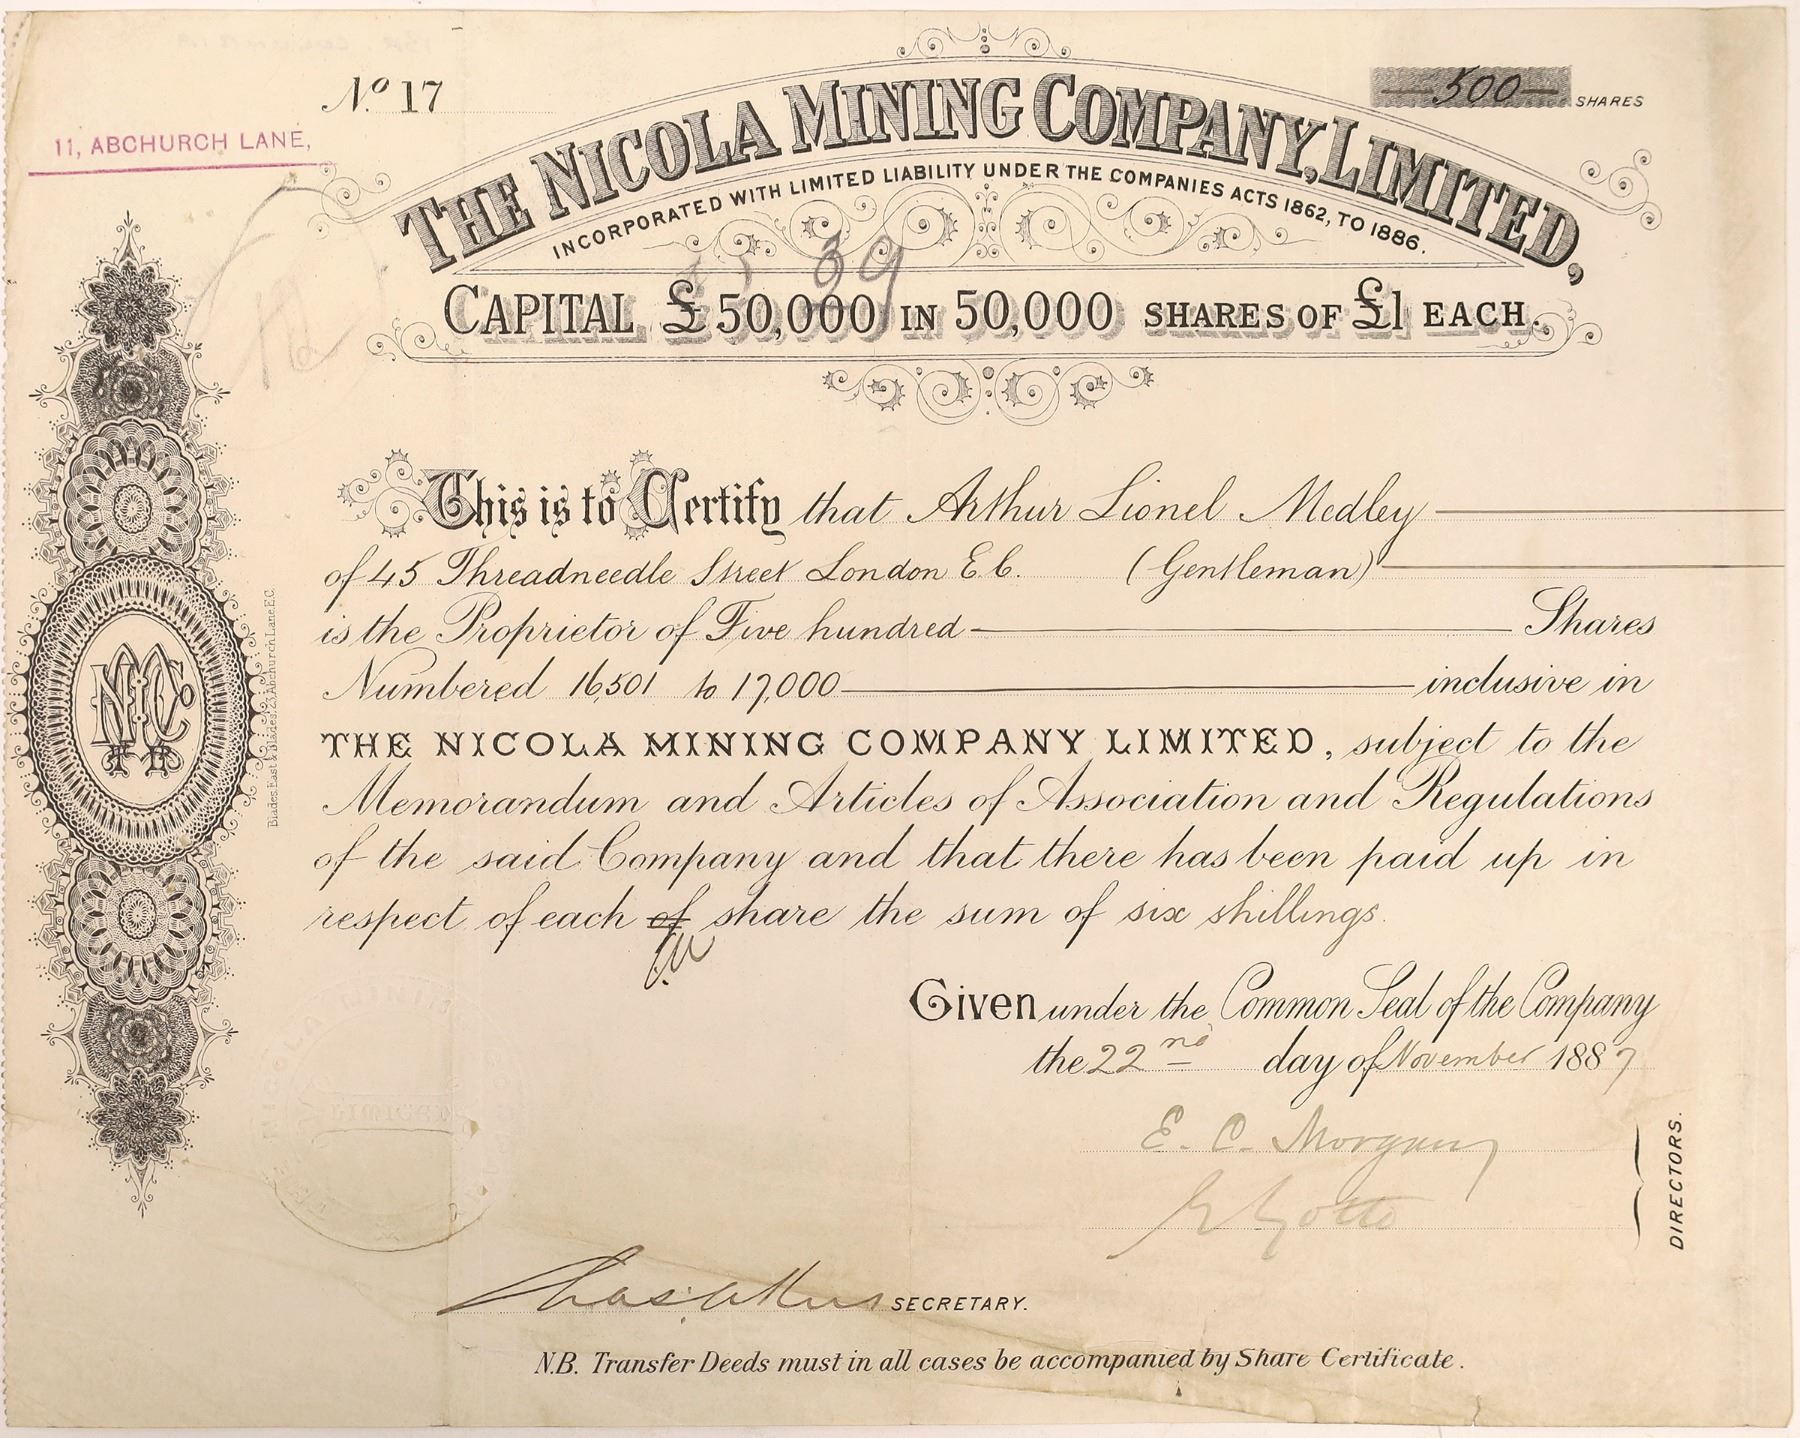 No. 17
500 SHARES
11, ABCHURCH LANE,
THE NICOLA MINING COMPANY, LIMITED,
INCORPORATED WITH LIMITED LIABILITY UNDER THE COMPANIES ACTS 1862, TO 1886.
39
CAPITAL £50,000 IN 50,000 SHARES OF £1 EACH.
This is to Certify that Arthur Lionel Medley
of 45 Threadneedle Street London E.C. (Gentleman)
is the Proprietor of Five hundred Shares
Numbered 16,501 to 17,000 inclusive in
THE NICOLA MINING COMPANY LIMITED, subject to the
Memorandum and Articles of Association and Regulations
of the said Company and that there has been paid up in
respect of each of share the sum of six shillings.
Given under the Common Seal of the Company
the 22nd day of November 1887
E. C. Morgan
E Gotto
DIRECTORS.
SECRETARY.
N.B. Transfer Deeds must in all cases be accompanied by Share Certificate.
Blades, East & Blades, 23, Abchurch Lane, E.C.